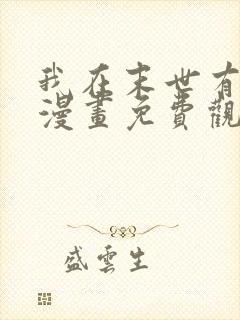 我在末世有
漫畫免費觀
盛雲生